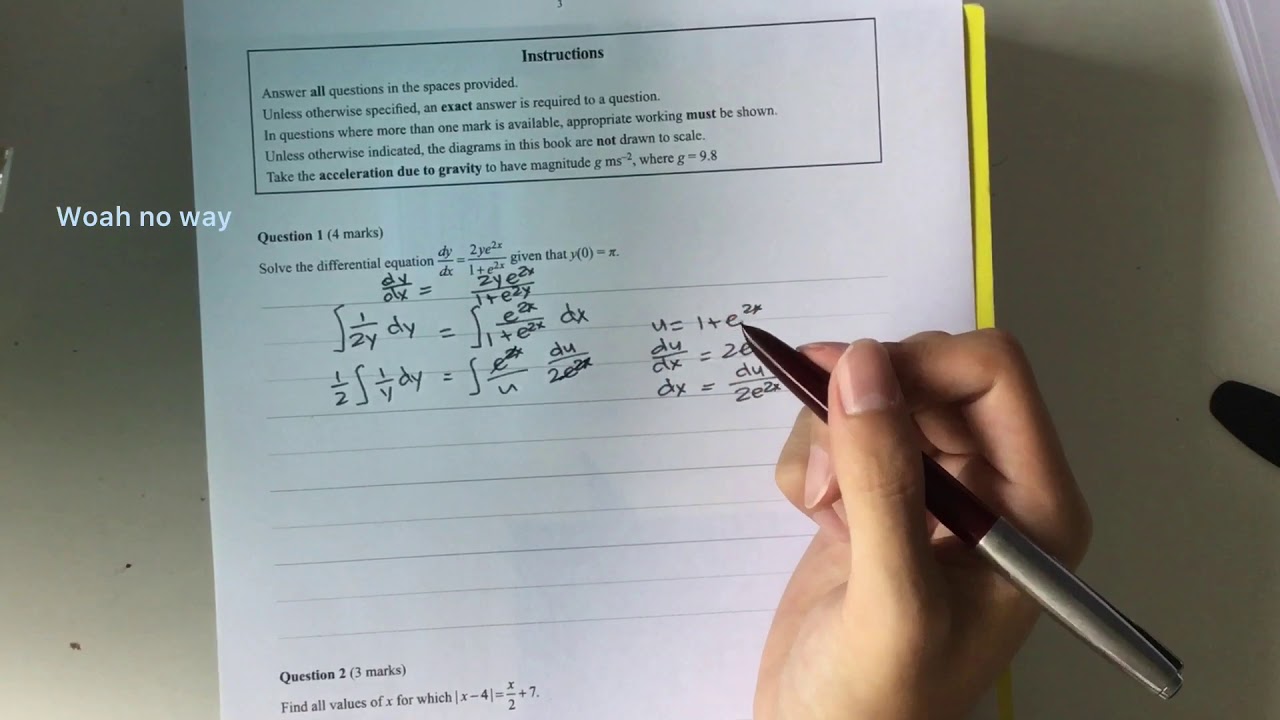 3
Instructions
Answer all questions in the spaces provided.
Unless otherwise specified, an exact answer is required to a question.
In questions where more than one mark is available, appropriate working must be shown.
Unless otherwise indicated, the diagrams in this book are not drawn to scale.
Take the acceleration due to gravity to have magnitude g ms⁻², where g = 9.8
Woah no way
Question 1 (4 marks)
Solve the differential equation dy/dx = 2ye^(2x)/(1+e^(2x)) given that y(0) = π.
dy/dx = 2ye^(2x)/(1+e^(2y))
∫ 1/(2y) dy = ∫ e^(2x)/(1+e^(2x)) dx
u = 1+e^(2x)
du/dx = 2e
1/2 ∫ 1/y dy = ∫ e^(2x)/u du/(2e^(2x))
dx = du/(2e^(2x))
Question 2 (3 marks)
Find all values of x for which |x−4| = x/2 + 7.